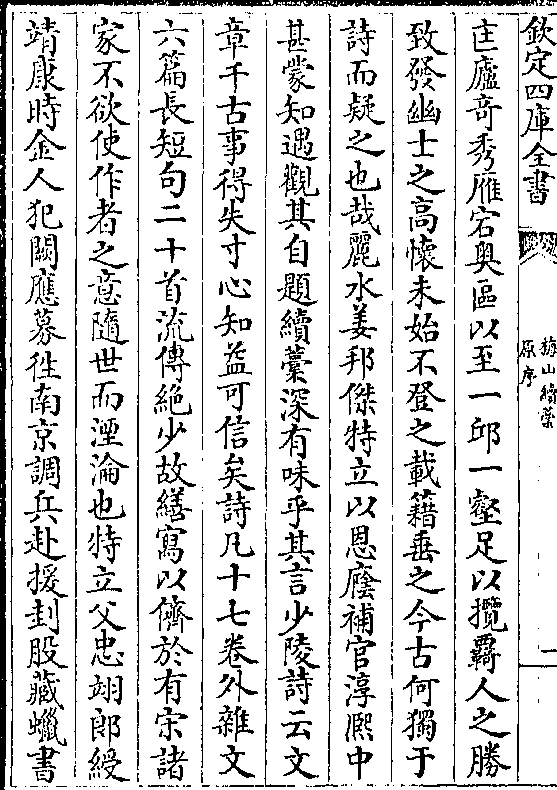 欽定四庫全書
梅山續藁
原序
一
匡廬奇秀雁宕奥區以至一邱一壑足以攬覊人之勝
致發幽士之高懷未始不登之載籍垂之今古何獨于
詩而疑之也哉麗水姜邦傑特立以恩廕補官淳熙中
甚蒙知遇觀其自題續藁深有味乎其言少陵詩云文
章千古事得失寸心知益可信矣詩凡十七卷外雜文
六篇長短句二十首流傳絶少故繕寫以儕於有宋諸
家不欲使作者之意隨世而湮淪也特立父忠翊郎綬
靖康時金人犯闕應募徃南京調兵赴援刲股藏蠟書